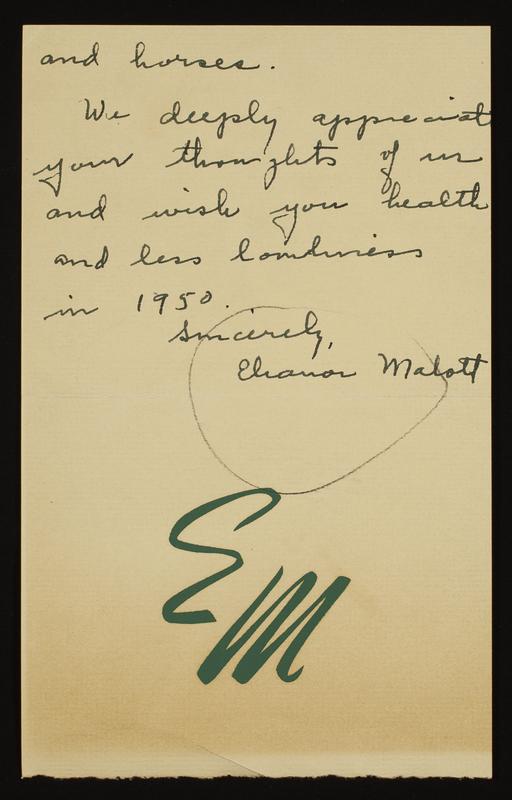 and horses.
We deeply appreciate
your thoughts of us
and wish you health
and less loneliness
in 1950.
Sincerely,
Eleanor Malott
EM